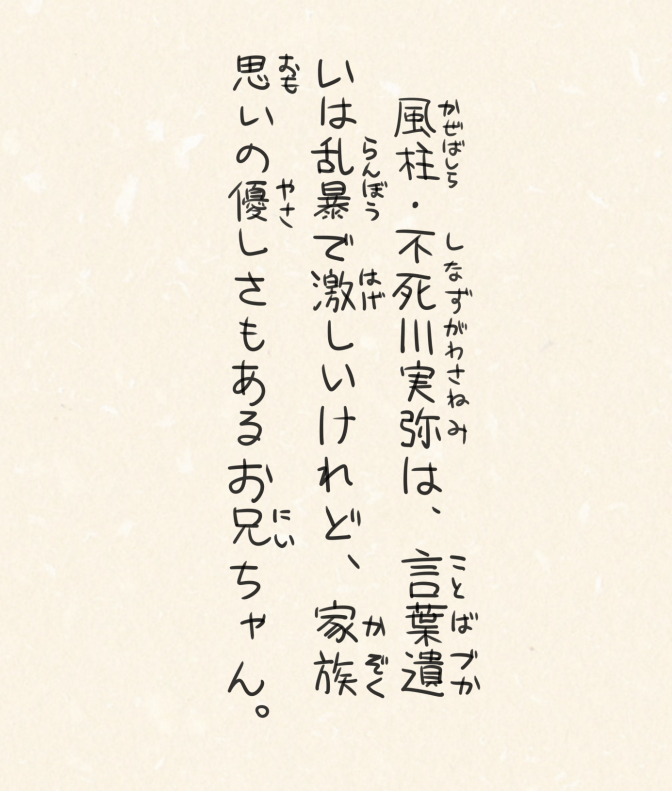 風柱・不死川実弥は、言葉遺
いは乱暴で激しいけれど、家族
思いの優しさもあるお兄ちゃん。
かぜばしら
しなずがわさねみ
ことばづか
らんぼう
はげ
かぞく
おも
やさ
にい